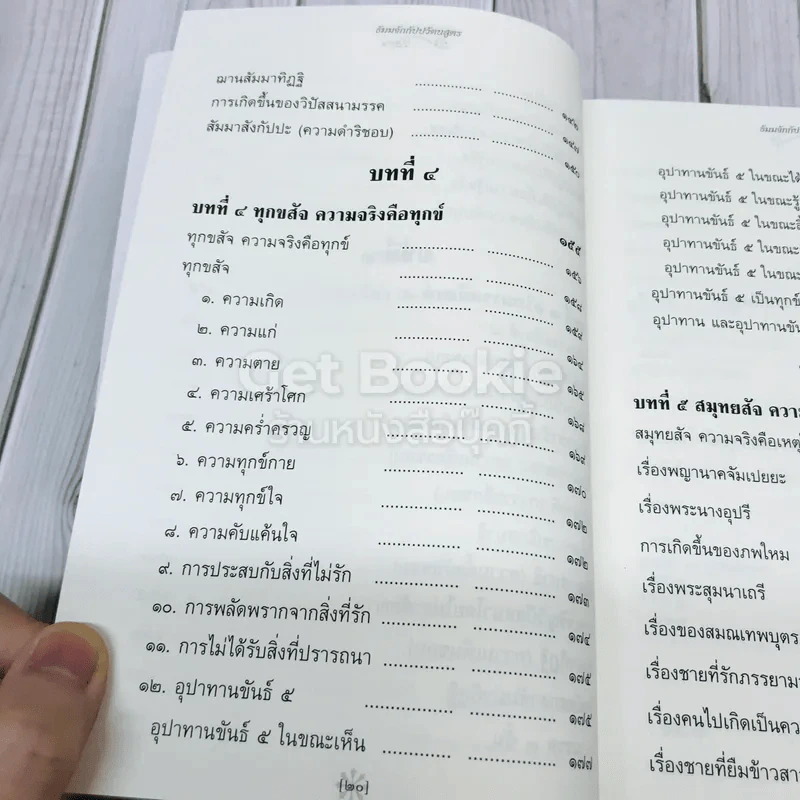 ธัมมจักกัปปวัตนสูตร
ฌานสัมมาทิฏฐิ ๑๔๖
การเกิดขึ้นของวิปัสสนามรรค ๑๔๗
สัมมาสังกัปปะ (ความดำริชอบ) ๑๕๐
บทที่ ๔
บทที่ ๔ ทุกขสัจ ความจริงคือทุกข์
ทุกขสัจ ความจริงคือทุกข์ ๑๕๕
ทุกขสัจ ๑๕๖
๑. ความเกิด ๑๕๘
๒. ความแก่ ๑๕๙
๓. ความตาย ๑๖๔
๔. ความเศร้าโศก ๑๖๕
๕. ความคร่ำครวญ ๑๖๘
๖. ความทุกข์กาย ๑๖๙
๗. ความทุกข์ใจ ๑๗๐
๘. ความคับแค้นใจ ๑๗๒
๙. การประสบกับสิ่งที่ไม่รัก ๑๗๒
๑๐. การพลัดพรากจากสิ่งที่รัก ๑๗๓
๑๑. การไม่ได้รับสิ่งที่ปรารถนา ๑๗๔
๑๒. อุปาทานขันธ์ ๕ ๑๗๕
อุปาทานขันธ์ ๕ ในขณะเห็น ๑๗๕
๑๗๗
[๒๐]
Get Bookie
ร้านหนังสือบุ๊คกี้
ธัมมจักกัปป
อุปาทานขันธ์ ๕ ในขณะได้
อุปาทานขันธ์ ๕ ในขณะรู้
อุปาทานขันธ์ ๕ ในขณะลิ้
อุปาทานขันธ์ ๕ ในขณะ
อุปาทานขันธ์ ๕ ในขณะ
อุปาทานขันธ์ ๕ เป็นทุกข์
อุปาทาน และอุปาทานขัน
บทที่ ๕ สมุทยสัจ ความ
สมุทยสัจ ความจริงคือเหตุ
เรื่องพญานาคจัมเปยยะ
เรื่องพระนางอุปรี
การเกิดขึ้นของภพใหม
เรื่องพระสุมนาเถรี
เรื่องของสมณเทพบุตร
เรื่องชายที่รักภรรยามา
เรื่องคนไปเกิดเป็นคว
เรื่องชายที่ยืมข้าวสาร